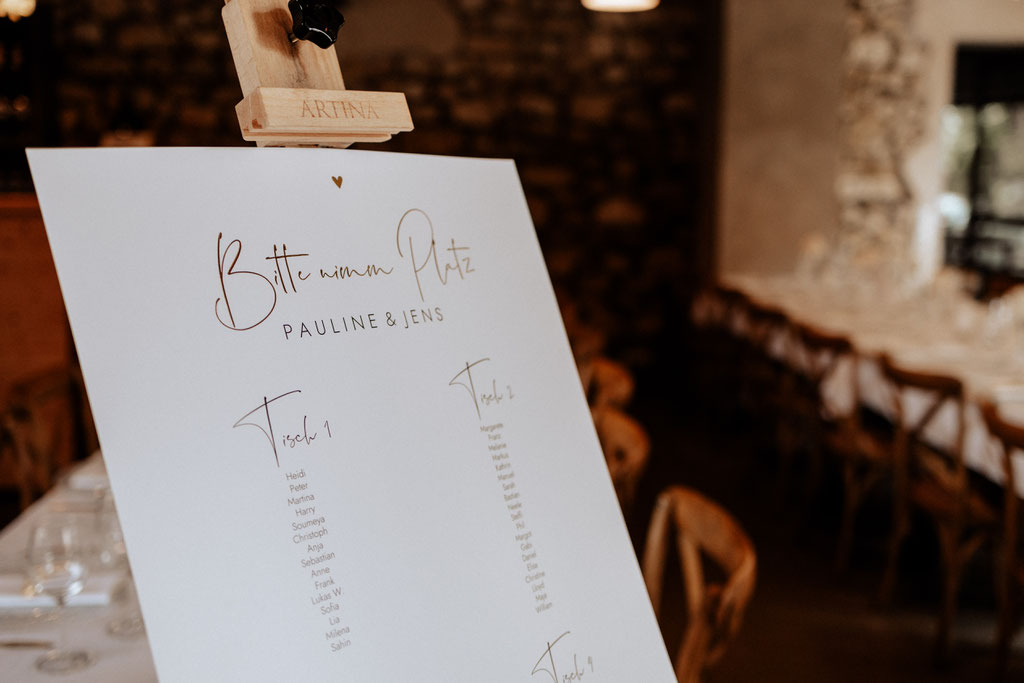 ARTINA
Bitte nimm Platz
PAULINE & JENS
Tisch 1
Heidi
Peter
Martina
Harry
Soumeya
Christoph
Anja
Sebastian
Anne
Frank
Lukas W
Sofia
Lia
Milena
Sahin
Tisch 2
Margarete
Franz
Melanie
Markus
Kathrin
Manuel
Sarah
Bastian
Neele
Steffi
Phil
Margot
Gabi
Daniel
Elise
Christine
Maja
William
Tisch 4